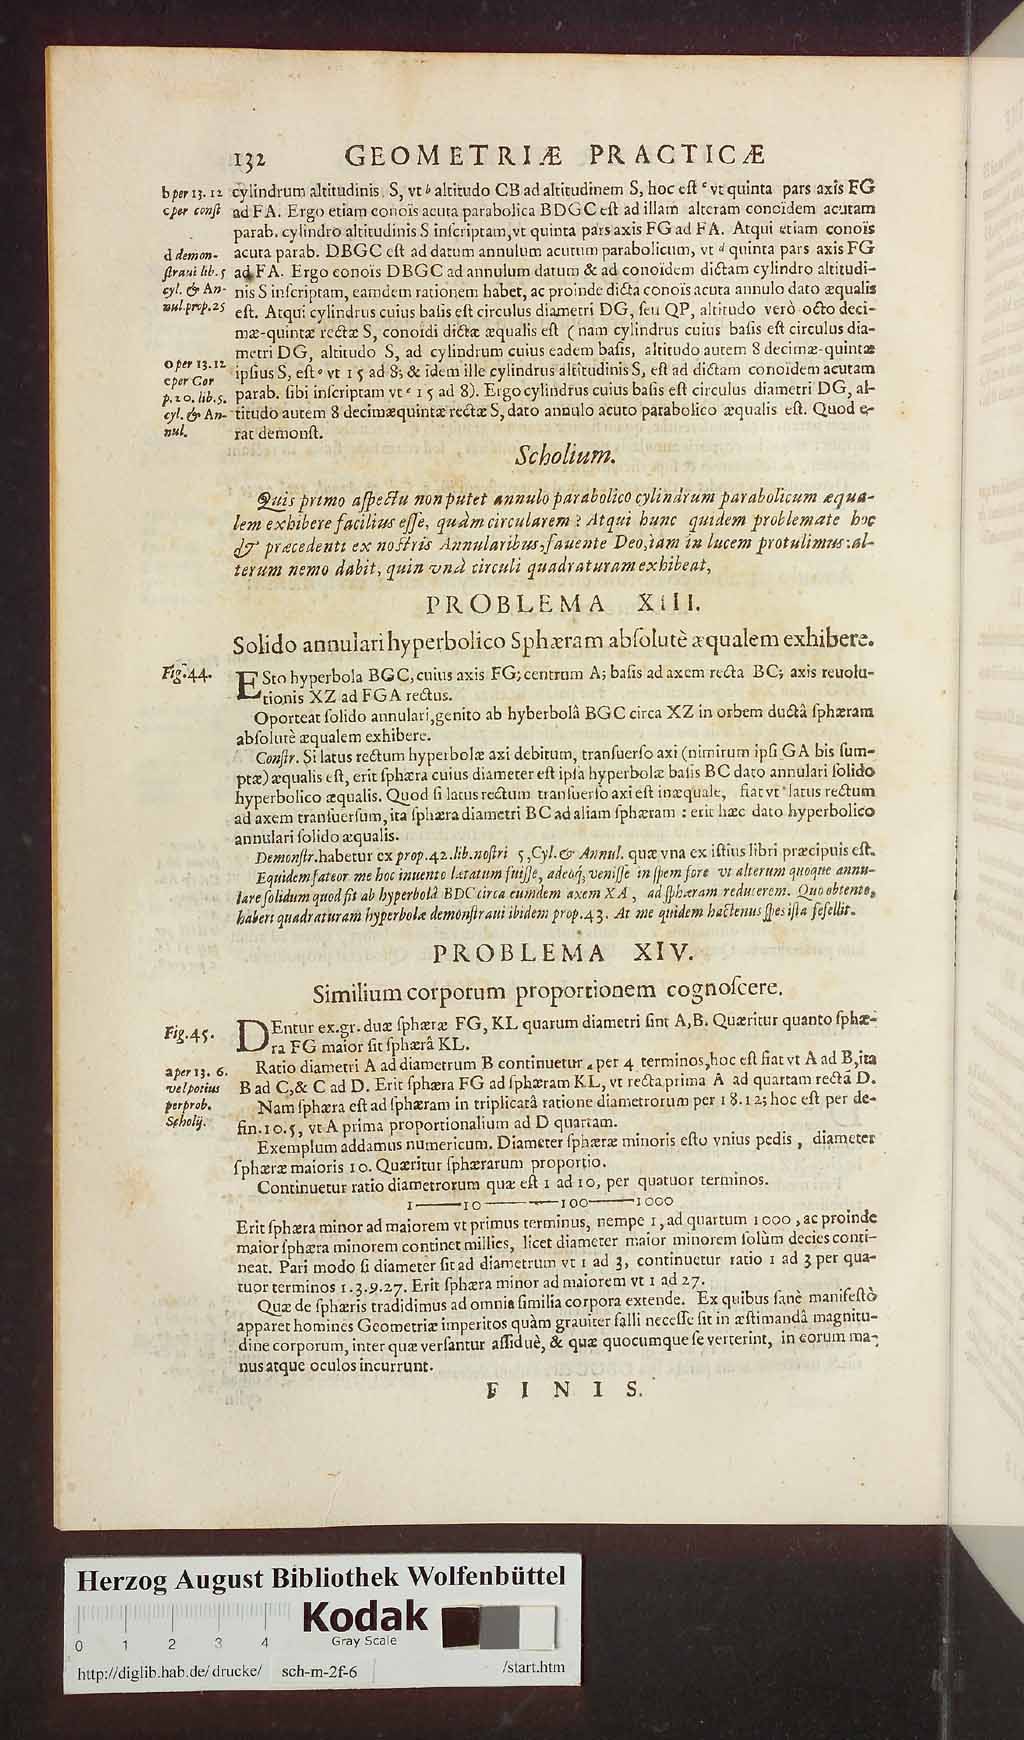 132 GEOMETRIÆ PRACTICÆ
b per 13. 12
c per conſt
d demon-
ſtraui lib. 5
cyl. & An-
nul. prop. 25
o per 13. 12
e per Cor
p. 20. lib. 5.
cyl. & An-
nul.
cylindrum altitudinis S, vt b altitudo CB ad altitudinem S, hoc eſt c vt quinta pars axis FG
ad FA. Ergo etiam conoïs acuta parabolica BDGC eſt ad illam alteram conoïdem acutam
parab. cylindro altitudinis S inſcriptam, vt quinta pars axis FG ad FA. Atqui etiam conoïs
acuta parab. DBGC eſt ad datum annulum acutum parabolicum, vt d quinta pars axis FG
ad FA. Ergo conoïs DBGC ad annulum datum & ad conoïdem dictam cylindro altitudi-
nis S inſcriptam, eamdem rationem habet, ac proinde dicta conoïs acuta annulo dato æqualis
eſt. Atqui cylindrus cuius baſis eſt circulus diametri DG, ſeu QP, altitudo verò octo deci-
mæ-quintæ rectæ S, conoïdi dictæ æqualis eſt (nam cylindrus cuius baſis eſt circulus dia-
metri DG, altitudo S, ad cylindrum cuius eadem baſis, altitudo autem 8 decimæ-quintæ
ipſius S, eſt o vt 15 ad 8; & idem ille cylindrus altitudinis S, eſt ad dictam conoïdem acutam
parab. ſibi inſcriptam vt e 15 ad 8). Ergo cylindrus cuius baſis eſt circulus diametri DG, al-
titudo autem 8 decimæquintæ rectæ S, dato annulo acuto parabolico æqualis eſt. Quod e-
rat demonſt.
Scholium.
Quis primo aſpectu non putet annulo parabolico cylindrum parabolicum æqua-
lem exhibere facilius eſſe, quàm circularem? Atqui hunc quidem problemate hoc
& præcedenti ex noſtris Annularibus, fauente Deo, iam in lucem protulimus: al-
terum nemo dabit, quin vnà circuli quadraturam exhibeat,
PROBLEMA XIII.
Solido annulari hyperbolico Sphæram abſolutè æqualem exhibere.
Fig. 44.
ESto hyperbola BGC, cuius axis FG; centrum A; baſis ad axem recta BC; axis reuolu-
tionis XZ ad FGA rectus.
Oporteat ſolido annulari, genito ab hyberbolâ BGC circa XZ in orbem ductâ ſphæram
abſolutè æqualem exhibere.
Conſtr. Si latus rectum hyperbolæ axi debitum, tranſuerſo axi (nimirum ipſi GA bis ſum-
ptæ) æqualis eſt, erit ſphæra cuius diameter eſt ipſa hyperbolæ baſis BC dato annulari ſolido
hyperbolico æqualis. Quod ſi latus rectum tranſuerſo axi eſt inæquale, fiat vt latus rectum
ad axem tranſuerſum, ita ſphæra diametri BC ad aliam ſphæram : erit hæc dato hyperbolico
annulari ſolido æqualis.
Demonſtr. habetur ex prop. 42. lib. noſtri 5, Cyl. & Annul. quæ vna ex iſtius libri præcipuis eſt.
Equidem fateor me hoc inuento lætatum fuiſſe, adeoq; veniſſe in ſpem fore vt alterum quoque annu-
lare ſolidum quod fit ab hyperbolâ BDC circa eumdem axem XA, ad ſphæram reducerem. Quo obtento,
haberi quadraturam hyperbolæ demonſtraui ibidem prop. 43. At me quidem hactenus ſpes iſta fefellit.
PROBLEMA XIV.
Similium corporum proportionem cognoſcere.
Fig. 45.
a per 13. 6.
vel potius
per prob.
Scholij.
DEntur ex. gr. duæ ſphæræ FG, KL quarum diametri ſint A, B. Quæritur quanto ſphæ-
ra FG maior ſit ſphærâ KL.
Ratio diametri A ad diametrum B continuetur a per 4 terminos, hoc eſt fiat vt A ad B, ita
B ad C, & C ad D. Erit ſphæra FG ad ſphæram KL, vt recta prima A ad quartam rectã D.
Nam ſphæra eſt ad ſphæram in triplicatâ ratione diametrorum per 18. 12; hoc eſt per de-
fin. 10. 5, vt A prima proportionalium ad D quartam.
Exemplum addamus numericum. Diameter ſphæræ minoris eſto vnius pedis, diameter
ſphæræ maioris 10. Quæritur ſphærarum proportio.
Continuetur ratio diametrorum quæ eſt 1 ad 10, per quatuor terminos.
1——10——100——1000
Erit ſphæra minor ad maiorem vt primus terminus, nempe 1, ad quartum 1000, ac proinde
maior ſphæra minorem continet millies, licet diameter maior minorem ſolùm decies conti-
neat. Pari modo ſi diameter ſit ad diametrum vt 1 ad 3, continuetur ratio 1 ad 3 per qua-
tuor terminos 1. 3. 9. 27. Erit ſphæra minor ad maiorem vt 1 ad 27.
Quæ de ſphæris tradidimus ad omnia ſimilia corpora extende. Ex quibus ſanè manifeſtò
apparet homines Geometriæ imperitos quàm grauiter falli neceſſe ſit in æſtimandâ magnitu-
dine corporum, inter quæ verſantur aſſiduè, & quæ quocumque ſe verterint, in eorum ma-
nus atque oculos incurrunt.
FINIS.
Herzog August Bibliothek Wolfenbüttel
Kodak
Gray Scale
0 1 2 3 4
http://diglib.hab.de/drucke/ sch-m-2f-6 /start.htm